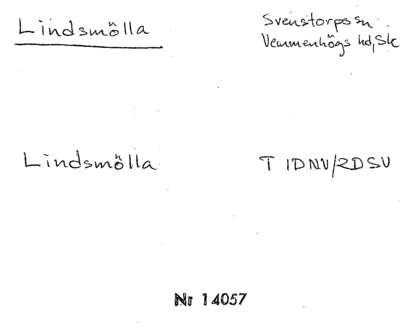 Lindsmölla
Svenstorps sn
Vemmenhögs hd, Sk
Lindsmölla
T 1DNV/2DSV
Nr 14057